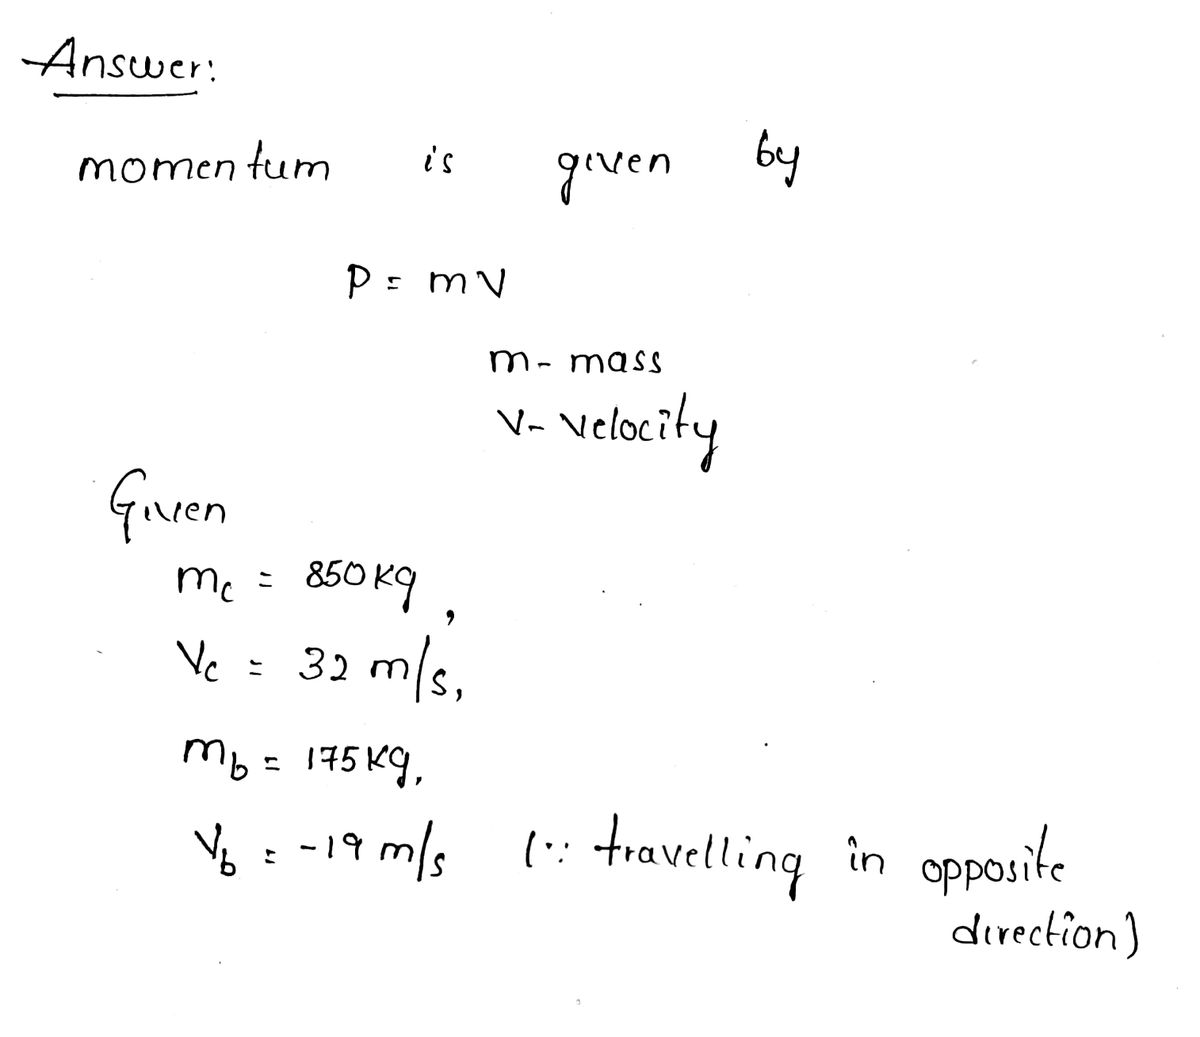 Answer:
momentum is given by
P = mV
m - mass
V - velocity
Given
mc = 850 kg,
Vc = 32 m/s,
mb = 175 kg,
Vb = -19 m/s (∵ travelling in opposite
direction)